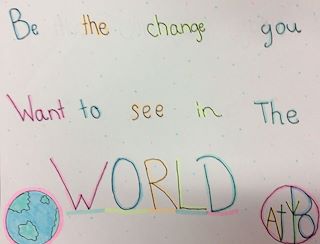 Be the change you
Want to see in The
WORLD